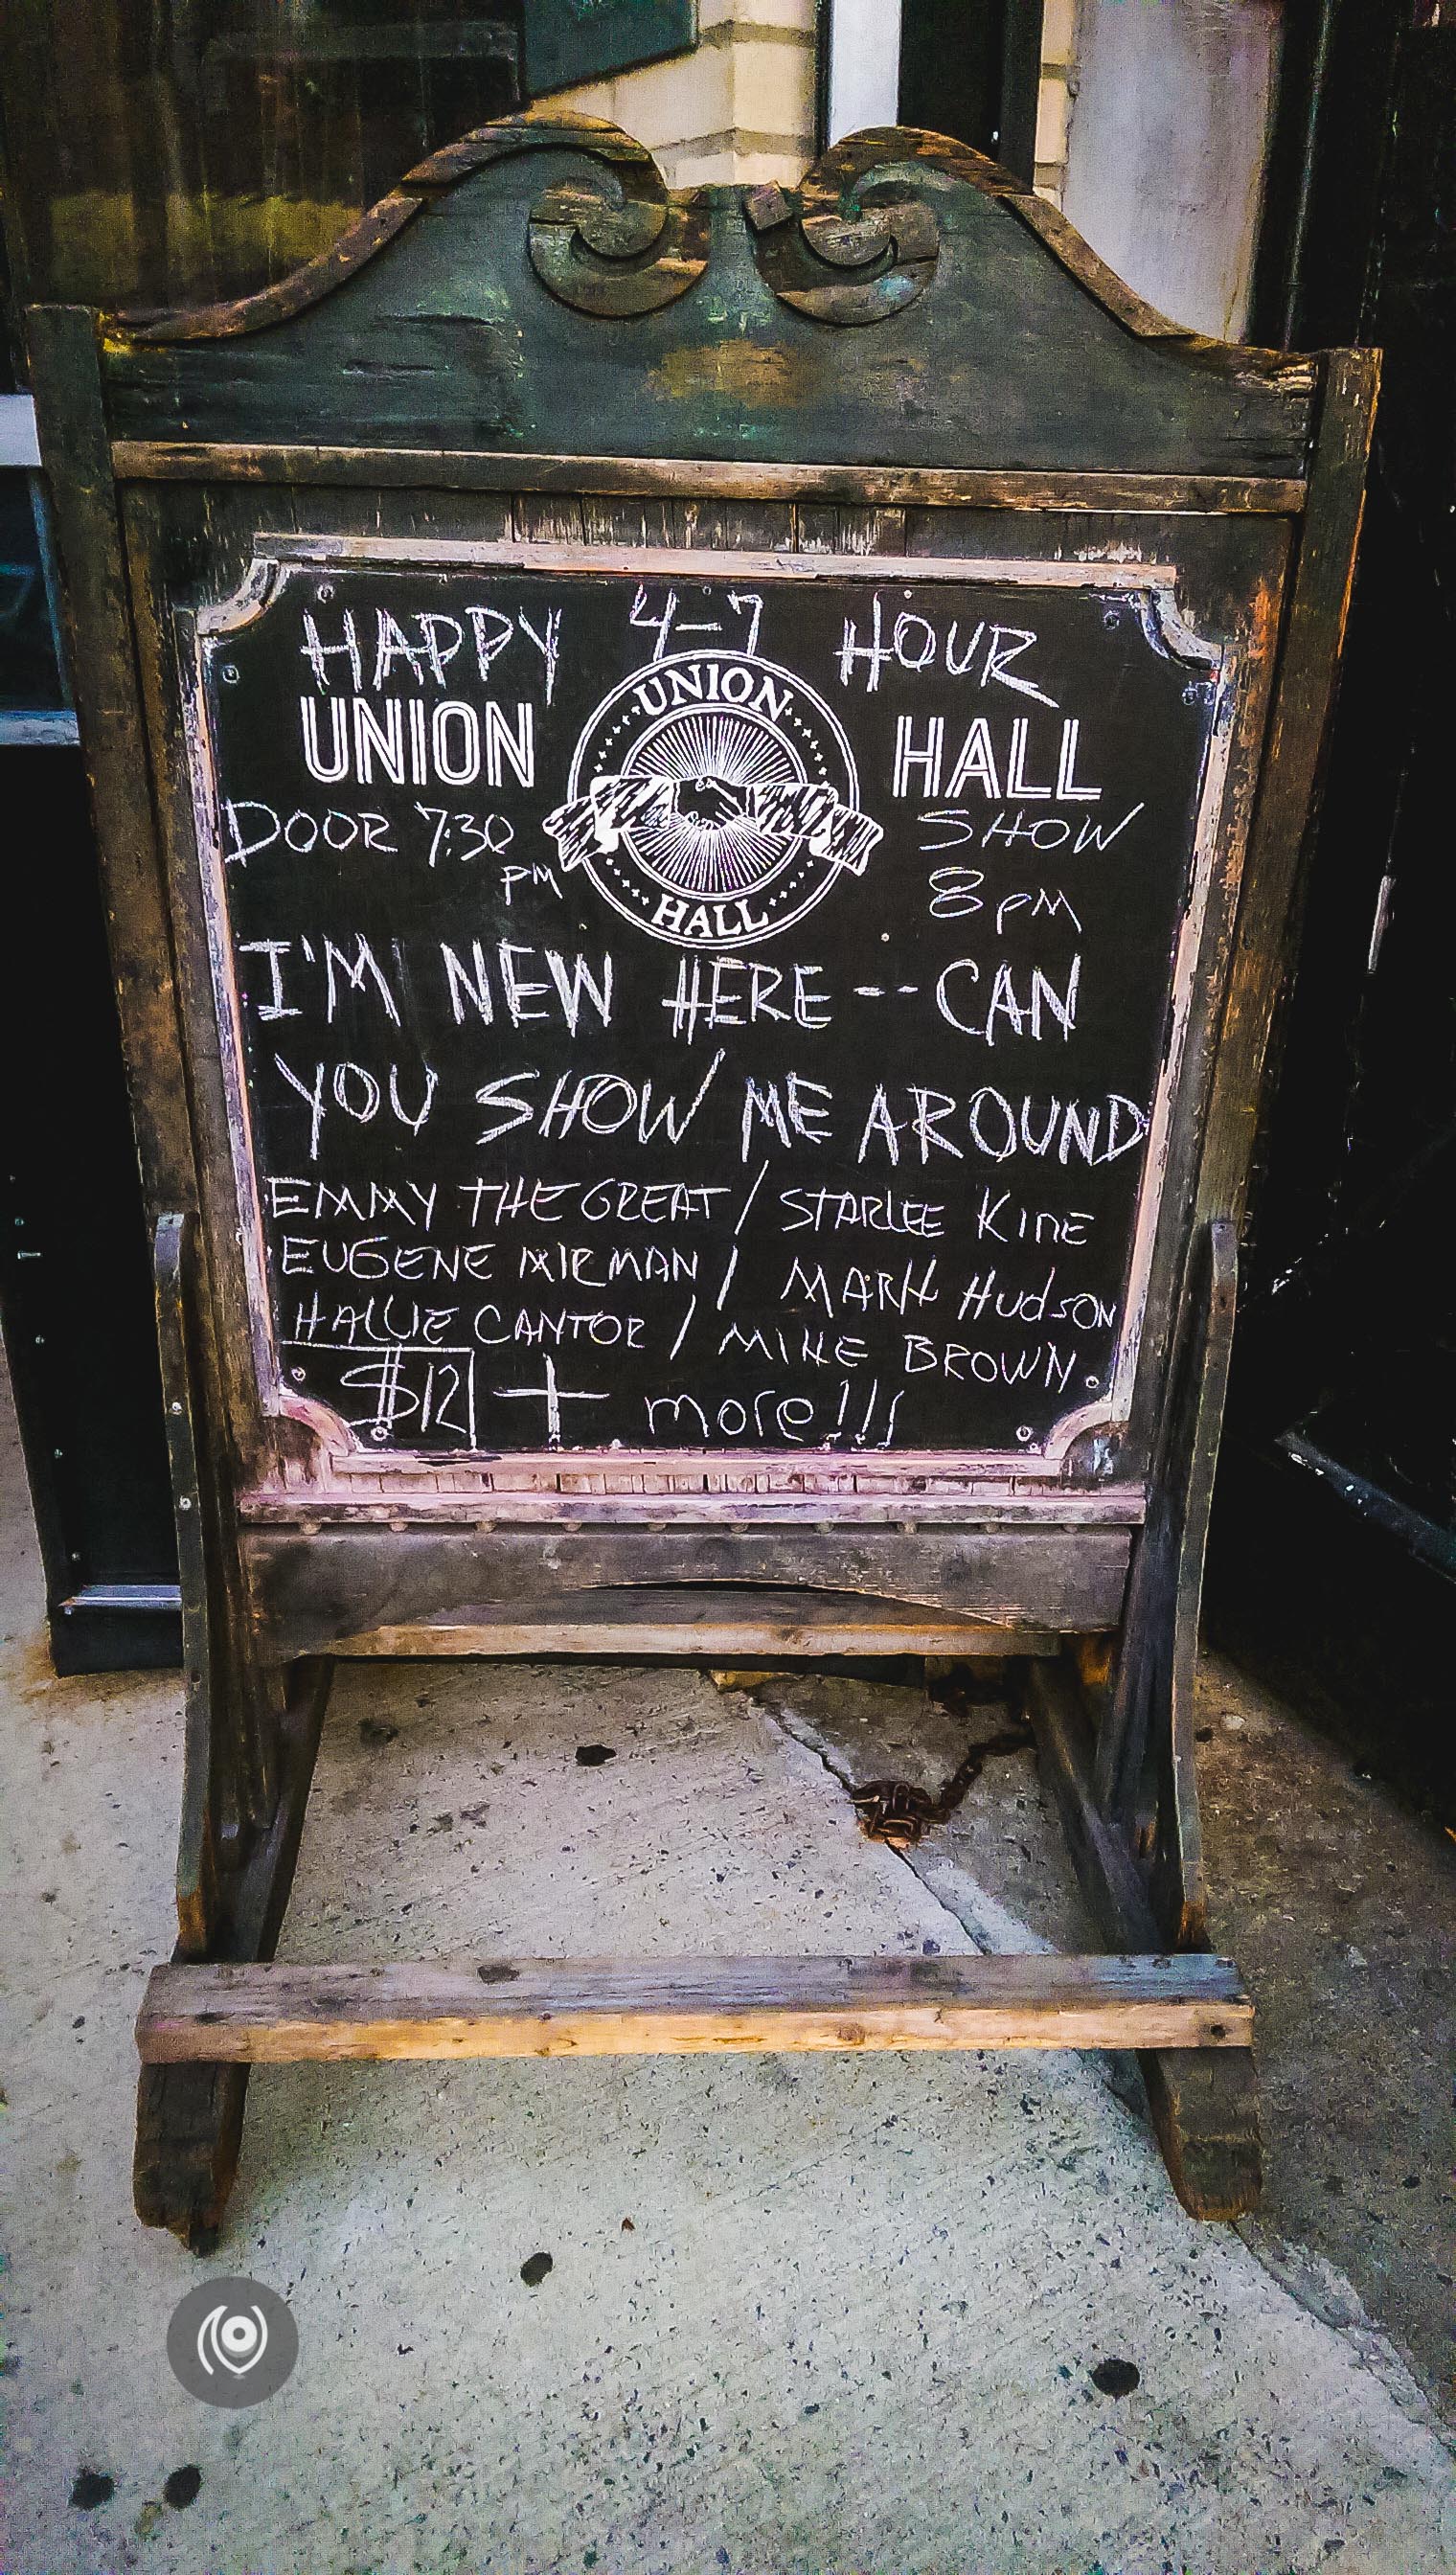 HAPPY 4-7 HOUR
UNION HALL
UNION
HALL
DOOR 7:30 PM
SHOW 8PM
I'M NEW HERE -- CAN
YOU SHOW ME AROUND
EMMY THE GREAT / STARLEE KINE
EUGENE MIRMAN / MARK HUDSON
HALLIE CANTOR / MIKE BROWN
$12 + more!!!